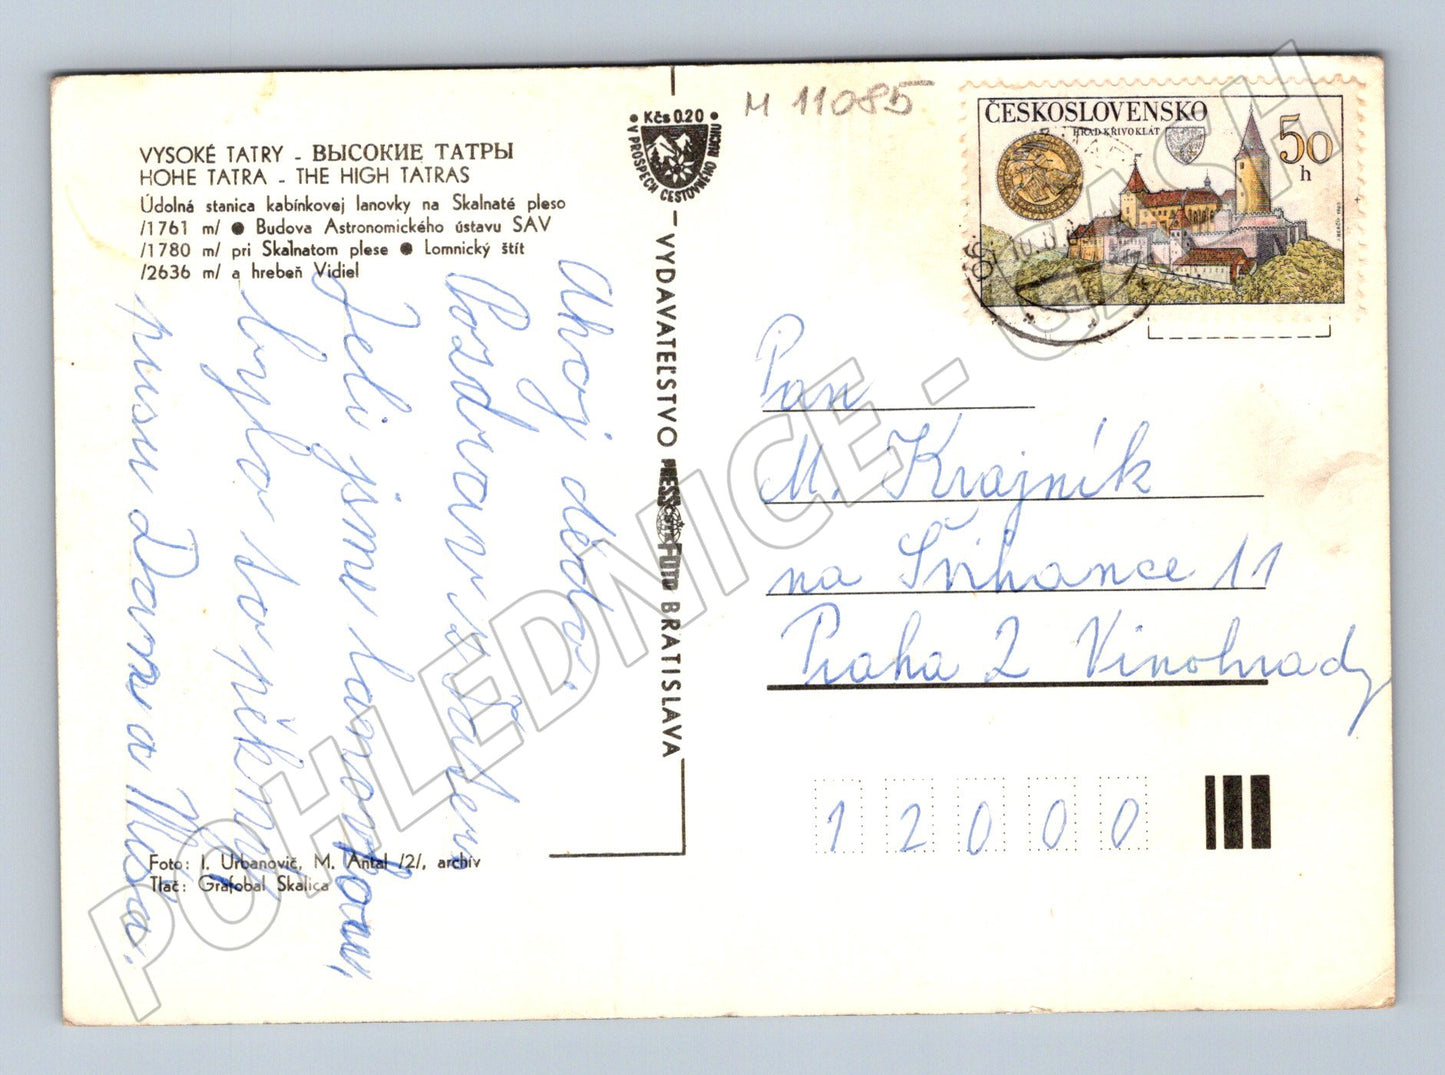 VYSOKÉ TATRY - ВЫСОКИЕ ТАТРЫ
HOHE TATRA - THE HIGH TATRAS
Údolná stanica kabínkovej lanovky na Skalnaté pleso
/1761 m/ ● Budova Astronomického ústavu SAV
/1780 m/ pri Skalnatom plese ● Lomnický štít
/2636 m/ a hrebeň Vidiel
Ahoj dědo,
Pozdrav z Tater
Jeli jsme lanovkou,
bylo to pěkný
pusu Dana a Míša.
Foto: I. Urbanovič, M. Antal /2/, archív
Tlač: Grafobal Skalica
• Kčs 0.20 •
V PROSPECH CESTOVNÉHO RUCHU
VYDAVATEĽSTVO PRESSFOTO BRATISLAVA
ČSTK
M 11085
ČESKOSLOVENSKO
HRAD KŘIVOKLÁT
50
h
Pan
M. Krajník
na Švihance 11
Praha 2 Vinohrady
1 2 0 0 0
POHLEDNICE - CASH